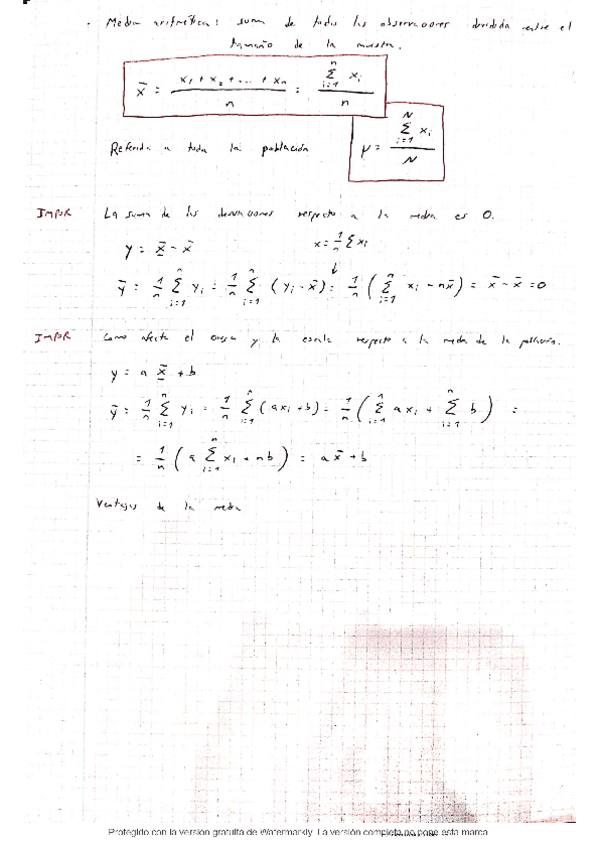 · Media aritmética: suma de todas las observaciones dividida entre el
tamaño de la muestra.
x̄ = (x₁ + x₂ + ... + xₙ) / n = (Σᵢ₌₁ⁿ xᵢ) / n
Referida a toda la población μ = (Σᵢ₌₁ᴺ xᵢ) / N
IMPOR La suma de las desviaciones respecto a la media es 0.
y = x̲ - x̄ x = 1/n Σ xᵢ
↓
ȳ = 1/n Σᵢ₌₁ⁿ yᵢ = 1/n Σᵢ₌₁ⁿ (yᵢ - x̄) = 1/n (Σᵢ₌₁ⁿ xᵢ - nx̄) = x̄ - x̄ = 0
IMPOR Como afecta el origen y la escala respecto a la media de la población.
y = a x̲ + b
ȳ = 1/n Σᵢ₌₁ⁿ yᵢ = 1/n Σᵢ₌₁ⁿ (axᵢ + b) = 1/n (Σᵢ₌₁ⁿ axᵢ + Σᵢ₌₁ⁿ b) =
= 1/n (a Σᵢ₌₁ⁿ xᵢ + nb) = a x̄ + b
Ventajas de la media
Protegido con la versión gratuita de Watermarkly. La versión completa no pone esta marca